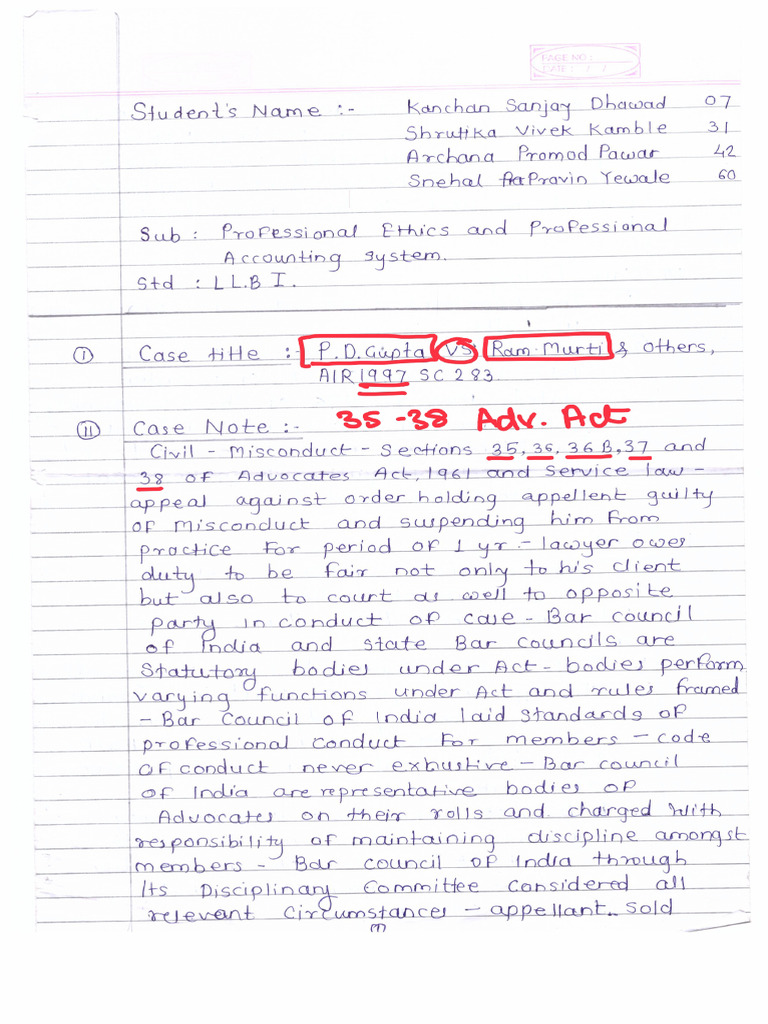 PAGE NO.:
DATE: / /
Student's Name :- Kanchan Sanjay Dhawad 07
Shrutika Vivek Kamble 31
Archana Promod Pawar 42
Snehal Pravin Yewale 60
Sub : Professional Ethics and Professional
Accounting system.
Std : LL.B I.
I Case title :- P.D.Gupta VS Ram Murti & others,
AIR 1997 SC 283.
35-38 Adv. Act
II Case Note :-
Civil - Misconduct - Sections 35, 36, 36 B, 37 and
38 of Advocates Act, 1961 and service law -
appeal against order holding appellent guilty
of misconduct and suspending him from
practice for period of 1 yr. - lawyer owes
duty to be fair not only to his client
but also to court as well to opposite
party in conduct of case - Bar council
of India and state Bar councils are
Statutory bodies under Act - bodies perform
varying functions under Act and rules framed
- Bar Council of India laid standards of
professional conduct for members - code
of conduct never exbustive - Bar council
of India are representative bodies of
Advocates on their rolls and charged with
responsibility of maintaining discipline amongst
members - Bar council of India through
Its Disciplinary Committee considered all
relevent circumstances - appellant sold
(1)